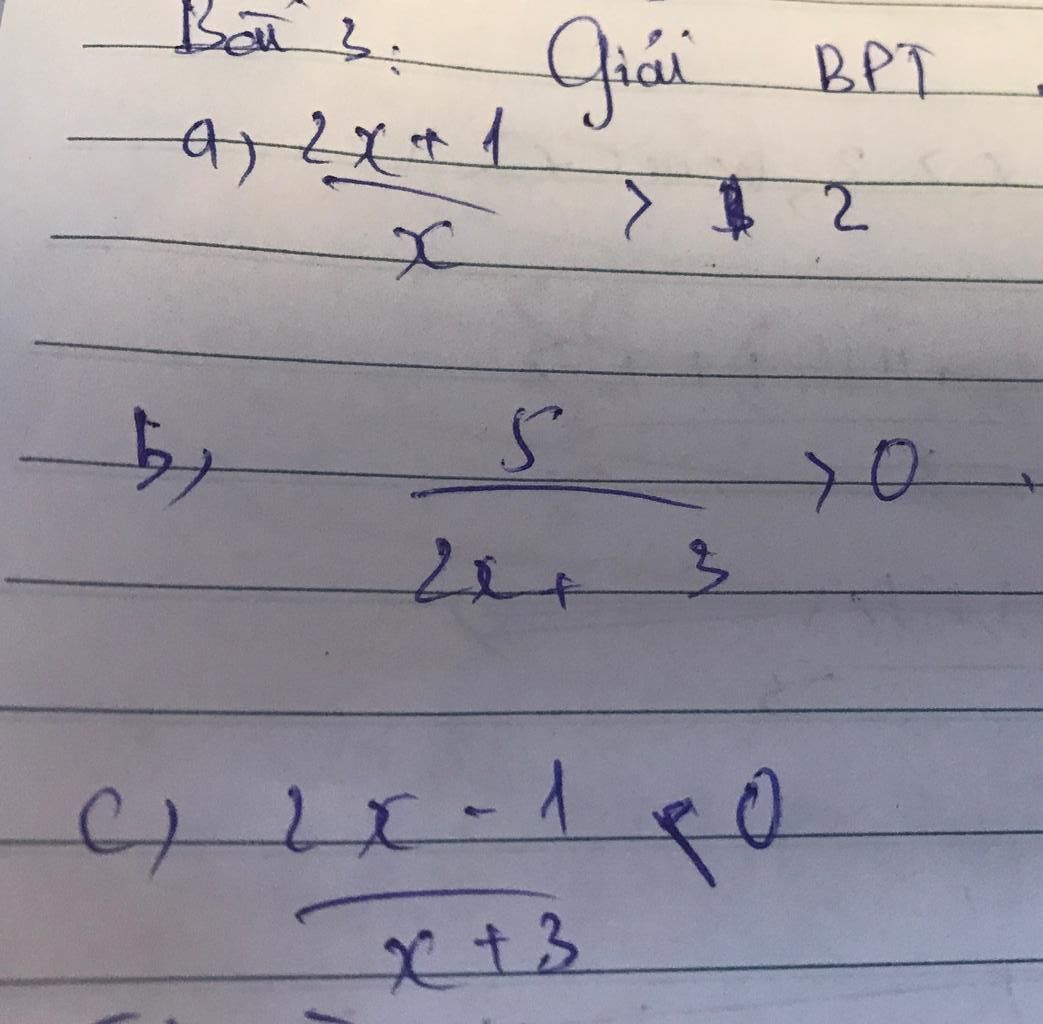 Bài 3: Giải BPT.
a) \frac{2x+1}{x} > 2
b) \frac{5}{2x+3} > 0
c) \frac{2x-1}{x+3} < 0